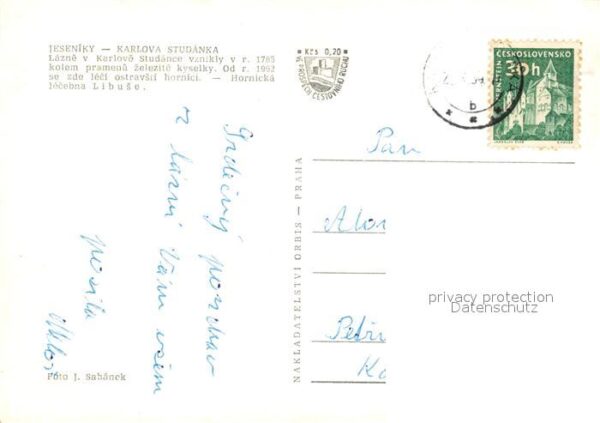 JESENÍKY — KARLOVA STUDÁNKA
Lázně v Karlově Studánce vznikly v r. 1785
kolem pramenů železité kyselky. Od r. 1952
se zde léčí ostravští horníci. — Hornická
léčebna Libuše.
Srdečný pozdrav
z lázní Vám všem
posílá
Foto J. Sabánek
Kčs 0,20
VE PROSPĚCH CESTOVNÍHO RUCHU
NAKLADATELSTVÍ ORBIS — PRAHA
b
ČESKOSLOVENSKO
30 h
PERNŠTEJN
Pan
Alo
Petř
Ko
privacy protection
Datenschutz